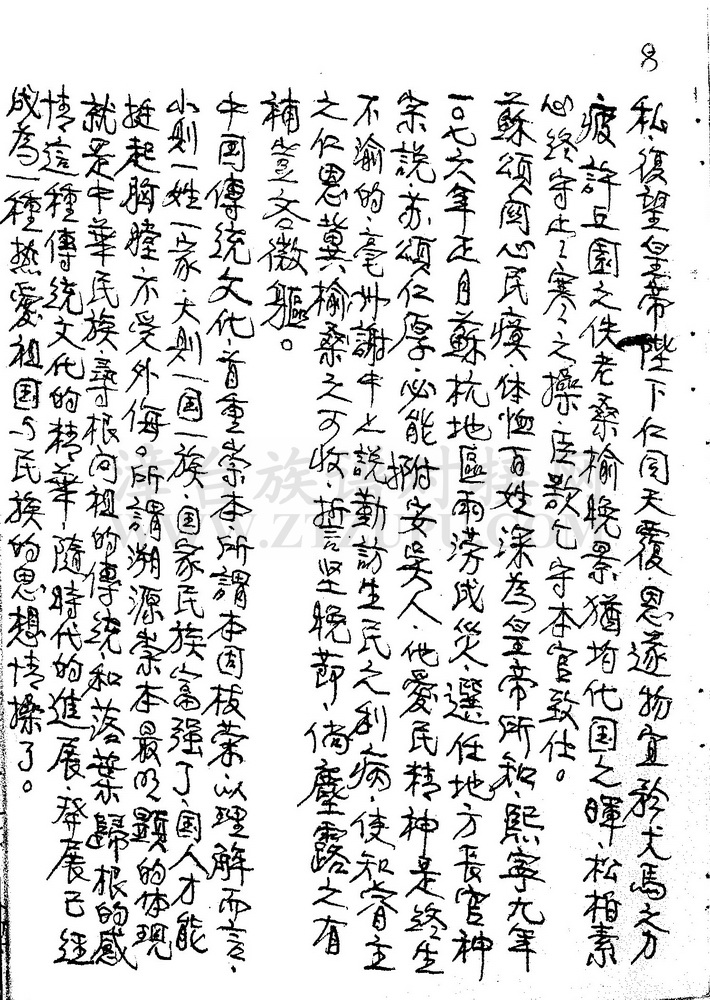 8
私，復望皇帝陛下仁同天覆，恩遂物宜，矜犬馬之力
疲，許丘園之佚老，桑榆晚景，猶均代国之暉，松柏素
心，终守之寒之操，臣欵乞守本官致仕。
蘇頌関心民瘼，体恤百姓，深為皇帝所知，熙寧九年
一〇七六年正月，蘇杭地區雨澇成災，選任地方長官，神
宗說，苏頌仁厚，必能拊安吳人，他愛民精神是終生
不渝的，亳州謝中上説，勤訪生民之利病，使知睿主
之仁恩，冀榆桑之可收，誓言坚晚節，倘塵露之有
補，豈吝微軀。
中国傳統文化，首重崇本，所謂本固枝荣，以理解而言，
小則一姓一家，大則一国一族，国家民族富强了，国人才能
挺起胸膛，不受外侮。所謂溯源崇本最明顯的体現
就是中華民族，尋根问祖的傳統和落葉歸根的感
情，這種傳統文化的精華，隨時代的進展，發展已經
成為一種热愛祖国与民族的思想情操了。
WWW.ZTZUPU.COM